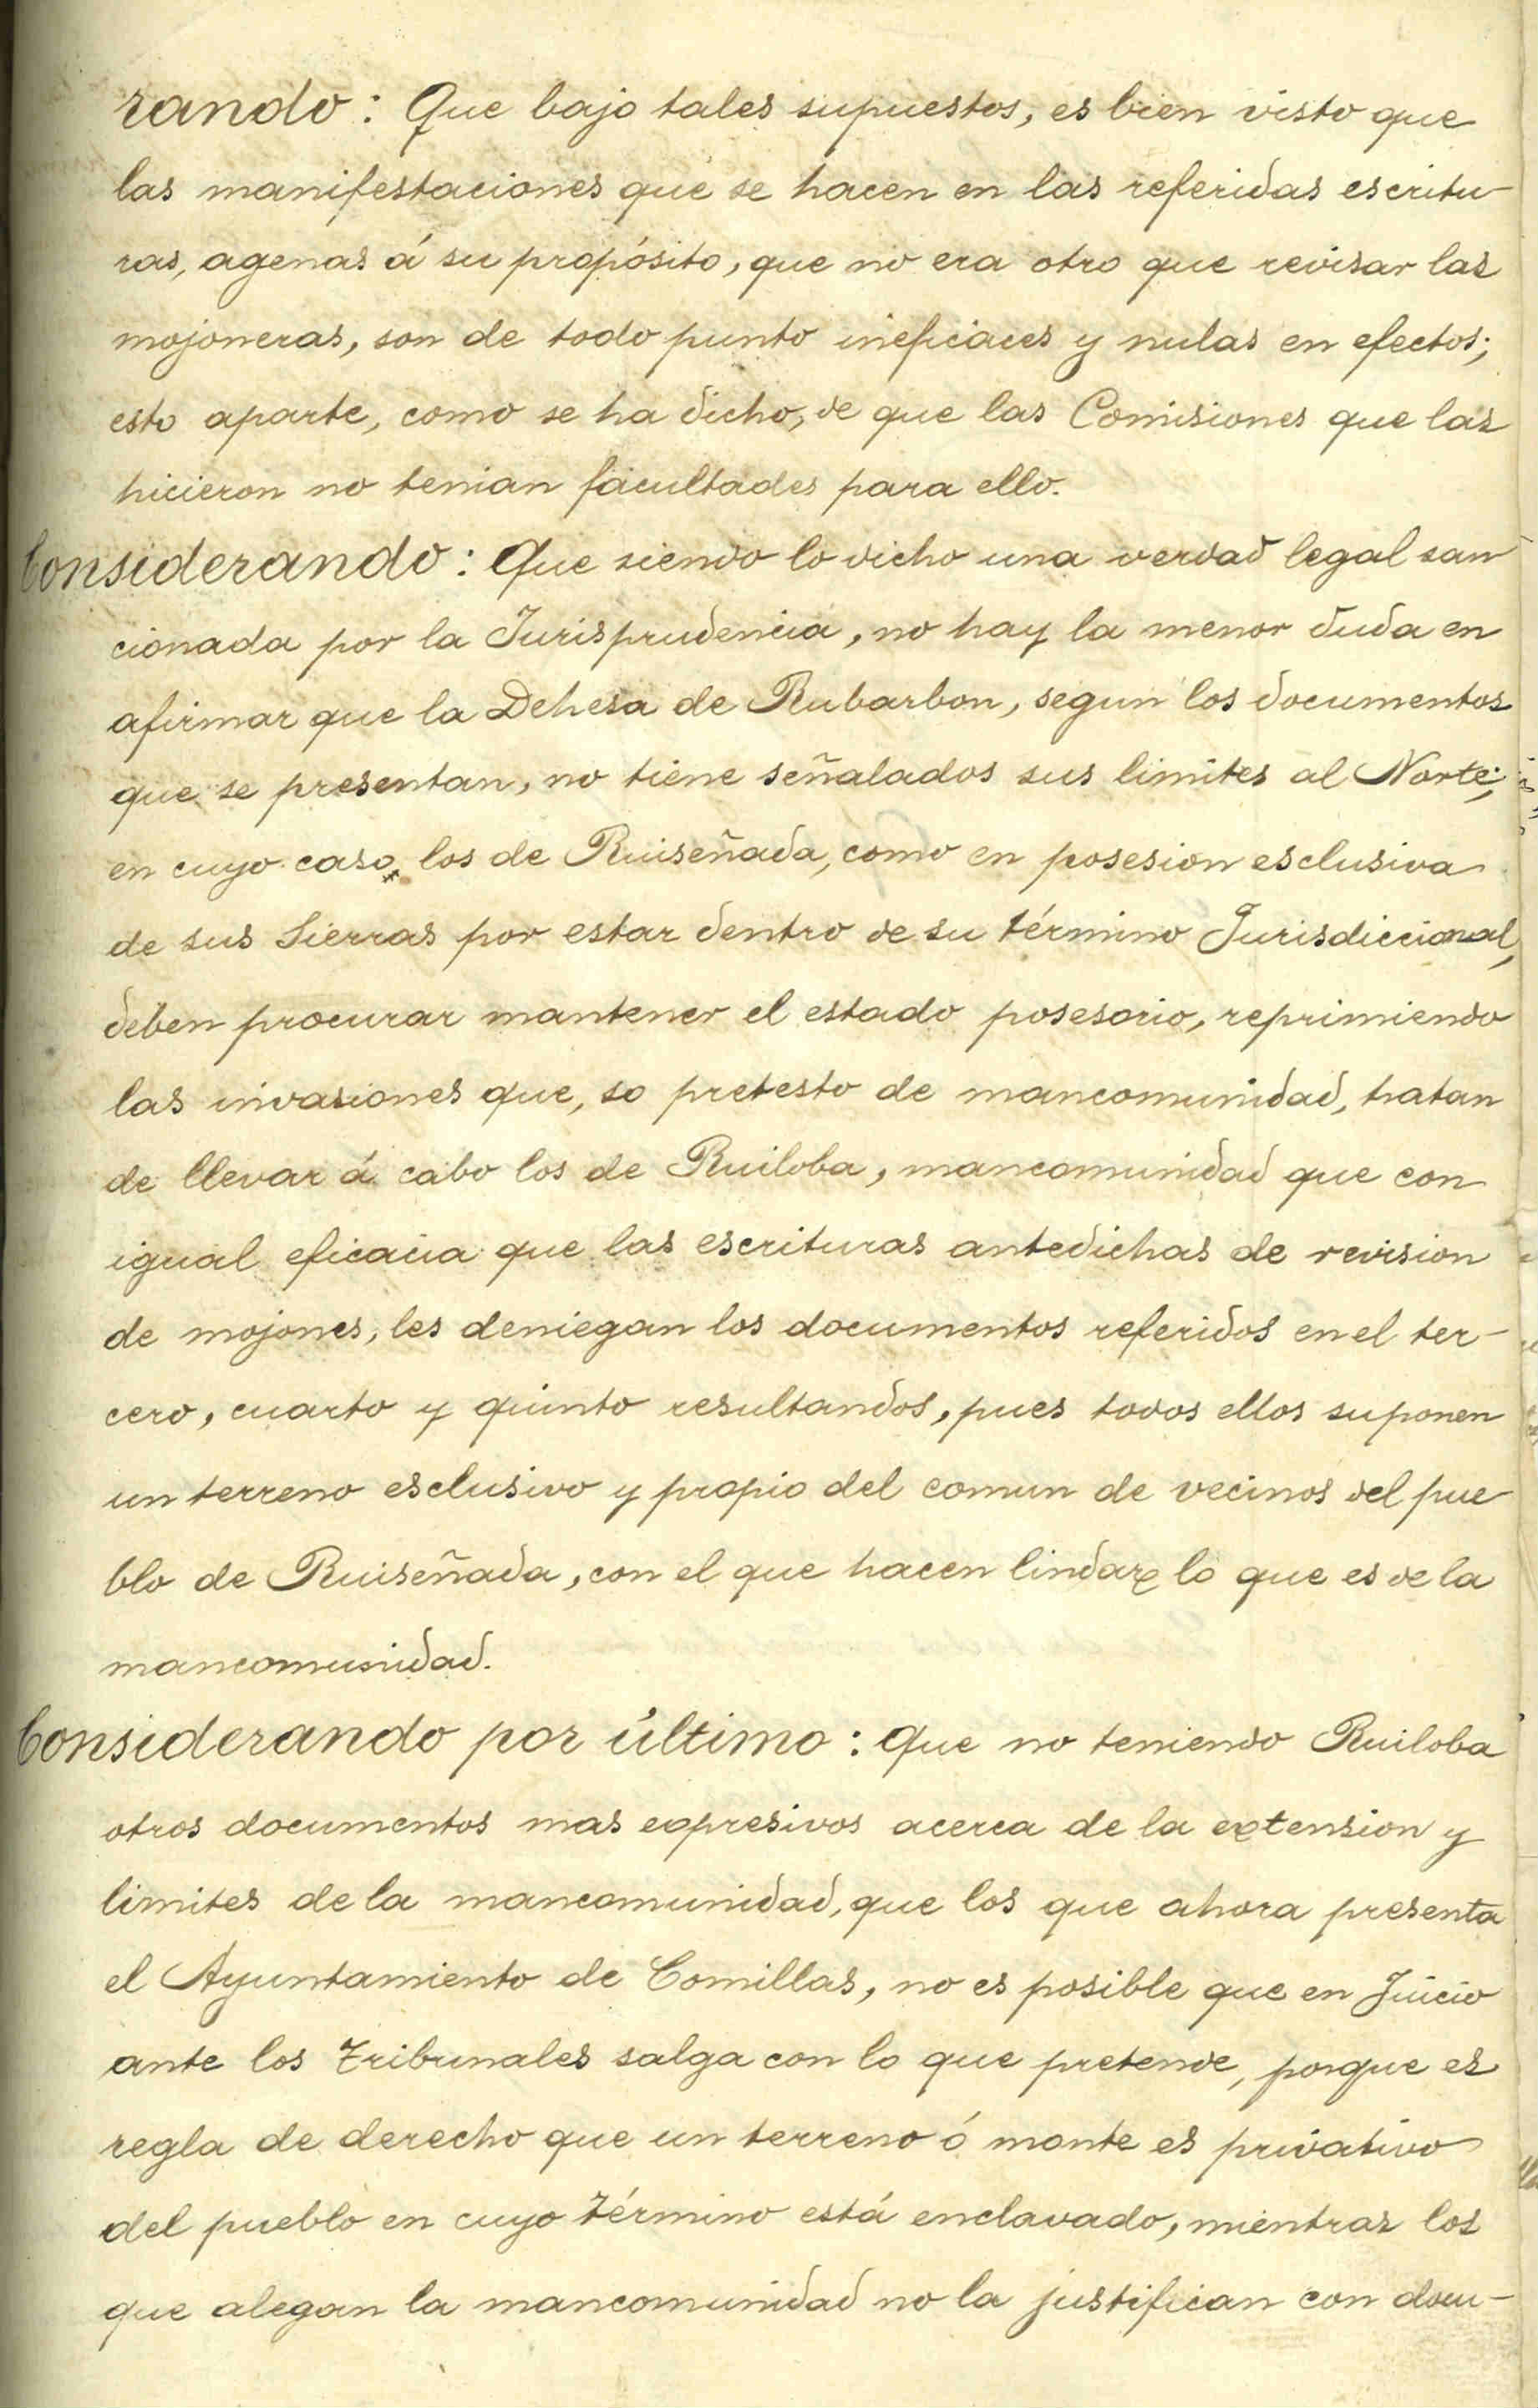 rando: Que bajo tales supuestos, es bien visto que
las manifestaciones que se hacen en las referidas escritu-
ras, agenas á su propósito, que no era otro que revisar las
mojoneras, son de todo punto ineficaces y nulas en efectos;
esto aparte, como se ha dicho, de que las Comisiones que las
hicieron no tenian facultades para ello.
Considerando: Que siendo lo dicho una verdad legal san
cionada por la Jurisprudencia, no hay la menor duda en
afirmar que la Dehesa de Rubarbon, segun los documentos
que se presentan, no tiene señalados sus limites al Norte;
en cuyo caso, los de Ruiseñada, como en posesion esclusiva
de sus Sierras por estar dentro de su término Jurisdiccional,
deben procurar mantener el estado posesorio, reprimiendo
las invasiones que, so pretesto de mancomunidad, tratan
de llevar á cabo los de Ruiloba, mancomunidad que con
igual eficacia que las escrituras antedichas de revision
de mojones, les deniegan los documentos referidos en el ter-
cero, cuarto y quinto resultandos, pues todos ellos suponen
un terreno esclusivo y propio del comun de vecinos del pue-
blo de Ruiseñada, con el que hacen lindar lo que es de la
mancomunidad.
Considerando por último: Que no teniendo Ruiloba
otros documentos mas expresivos acerca de la extension y
limites de la mancomunidad, que los que ahora presenta
el Ayuntamiento de Comillas, no es posible que en Juicio
ante los Tribunales salga con lo que pretende, porque es
regla de derecho que un terreno ó monte es privativo
del pueblo en cuyo término está enclavado, mientras los
que alegan la mancomunidad no la justifican con docu-